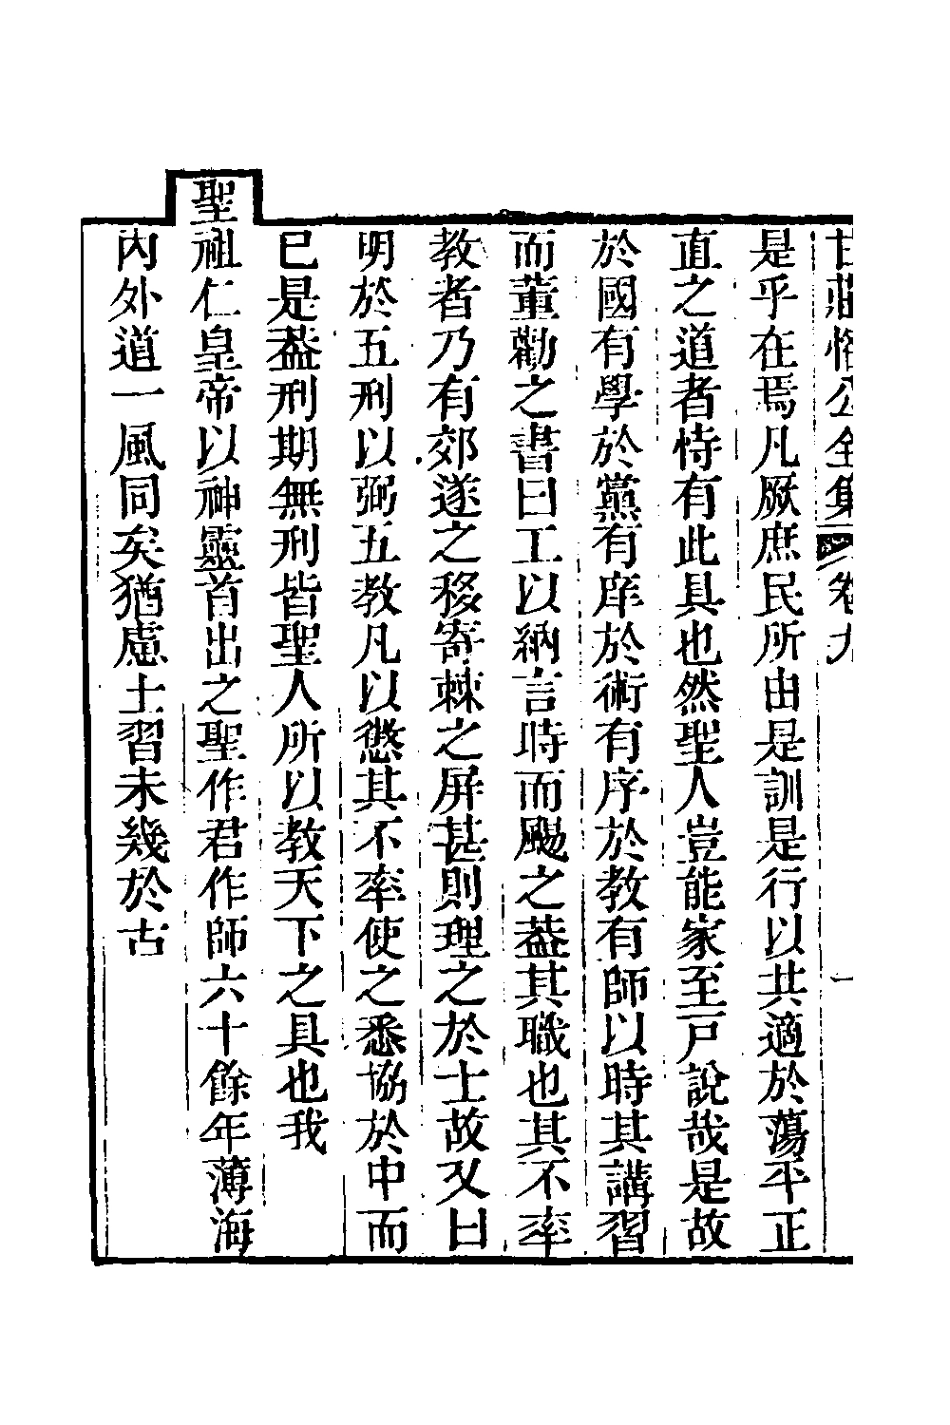 甘莊恪公全集 卷九 一
是乎在焉凡厥庶民所由是訓是行以共適於蕩平正
直之道者恃有此具也然聖人豈能家至戸說哉是故
於國有學於黨有庠於術有序於教有師以時其講習
而董勸之書曰工以納言時而颺之葢其職也其不率
教者乃有郊遂之移寄棘之屏甚則理之於士故又曰
明於五刑以弼五教凡以懲其不率使之悉協於中而
已是葢刑期無刑皆聖人所以教天下之具也我
聖祖仁皇帝以神靈首出之聖作君作師六十餘年薄海
內外道一風同矣猶慮士習未幾於古